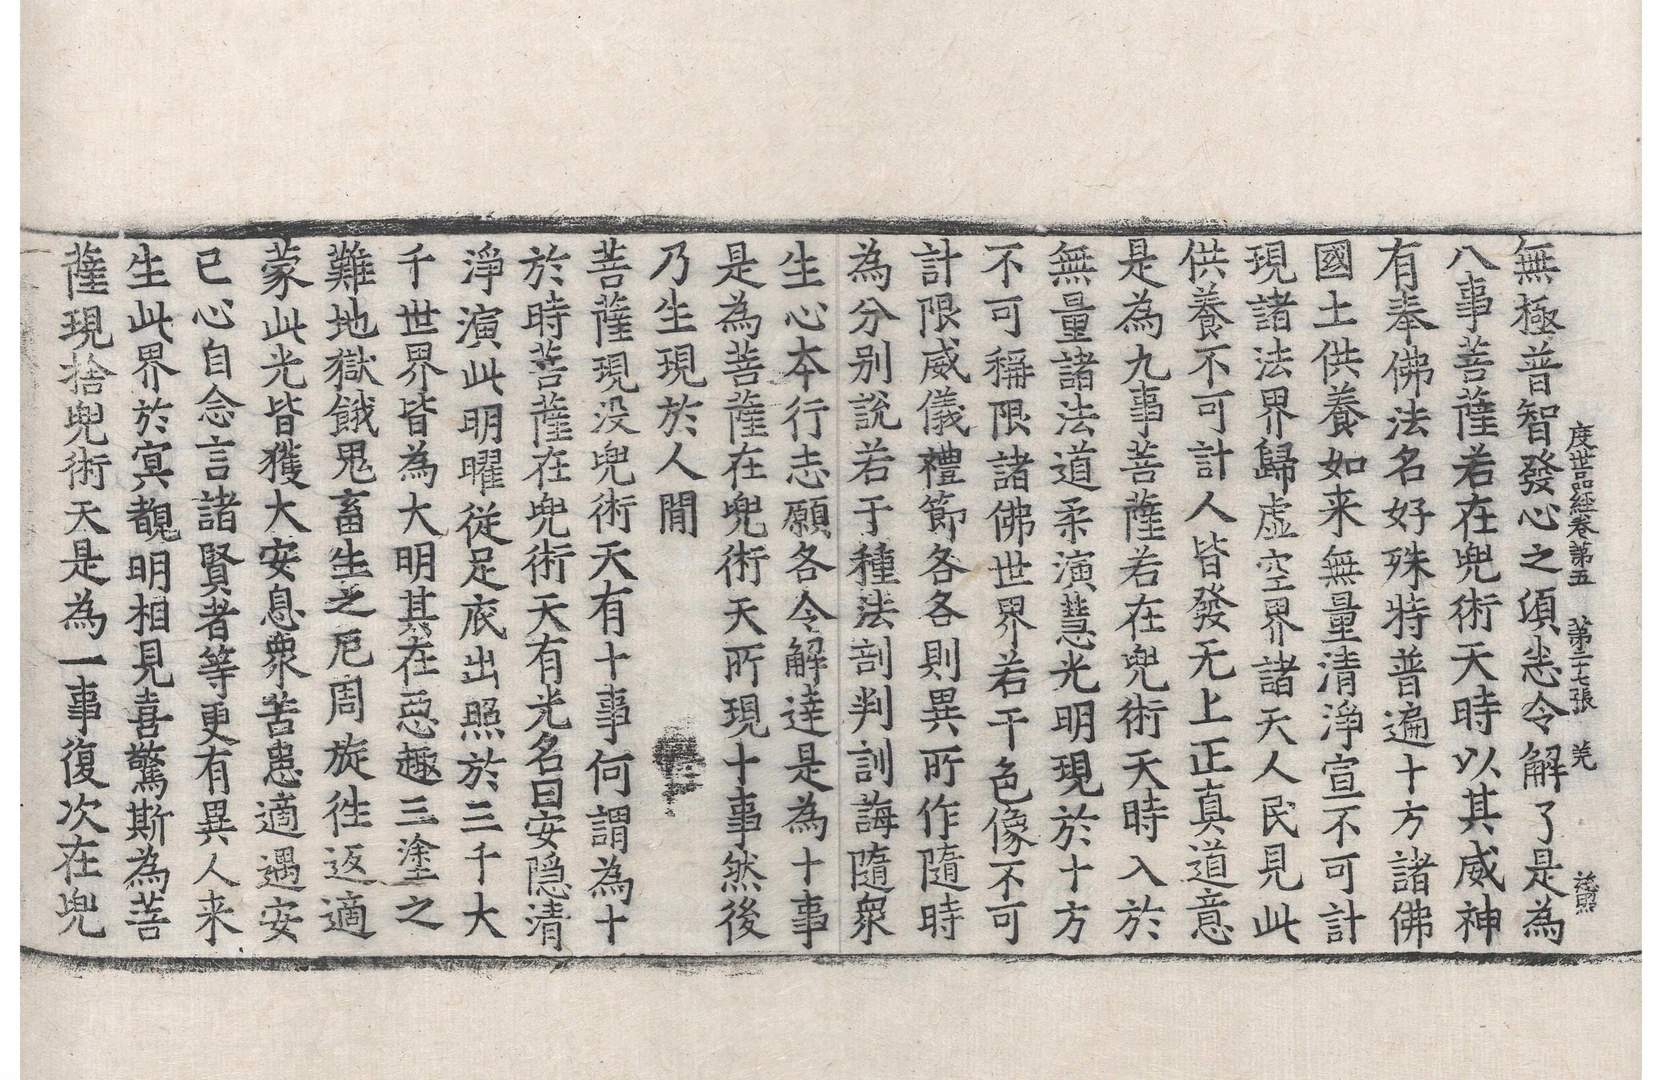 度世品經卷第五 第二七張 羌
無極普智發心之須恙令解了是為
八事菩薩若在兜術天時以其威神
有奉佛法名好殊特普遍十方諸佛
國土供養如来無量清淨宣不可計
現諸法界歸虛空界諸天人民見此
供養不可計人皆發无上正真道意
是為九事菩薩若在兜術天時入於
無量諸法道柔演慧光明現於十方
不可稱限諸佛世界若干色像不可
計限威儀禮節各各則異所作隨時
為分別說若于種法剖判訓誨隨衆
生心本行志願各令解達是為十事
是為菩薩在兜術天所現十事然後
乃生現於人間
菩薩現没兜術天有十事何謂為十
於時菩薩在兜術天有光名曰安隱清
淨演此明曜從足底出照於三千大
千世界皆為大明其在惡趣三塗之
難地獄餓鬼畜生之厄周旋徃返適
蒙此光皆獲大安息衆苦患適遇安
已心自念言諸賢者等更有異人来
生此界於冥覩明相見喜驚斯為菩
薩現捨兜術天是為一事復次在兜